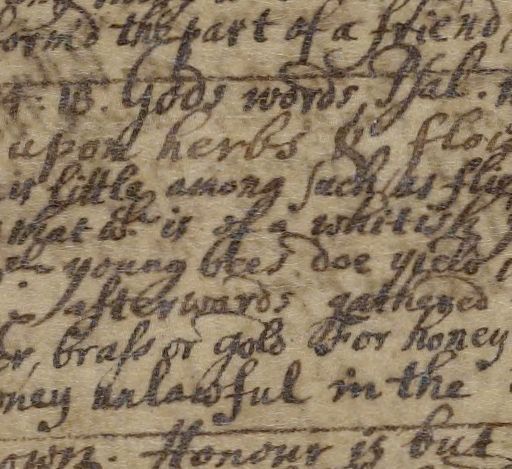 orm'd the part of a friend,
4. 18. Gods words, Psal.
upon herbs & flow
is little among such as flie
that wch is of a whitish
young bees doe yield
afterwards gathered
er, brass or gold. For honey
oney unlawful in the
own. Honour is but